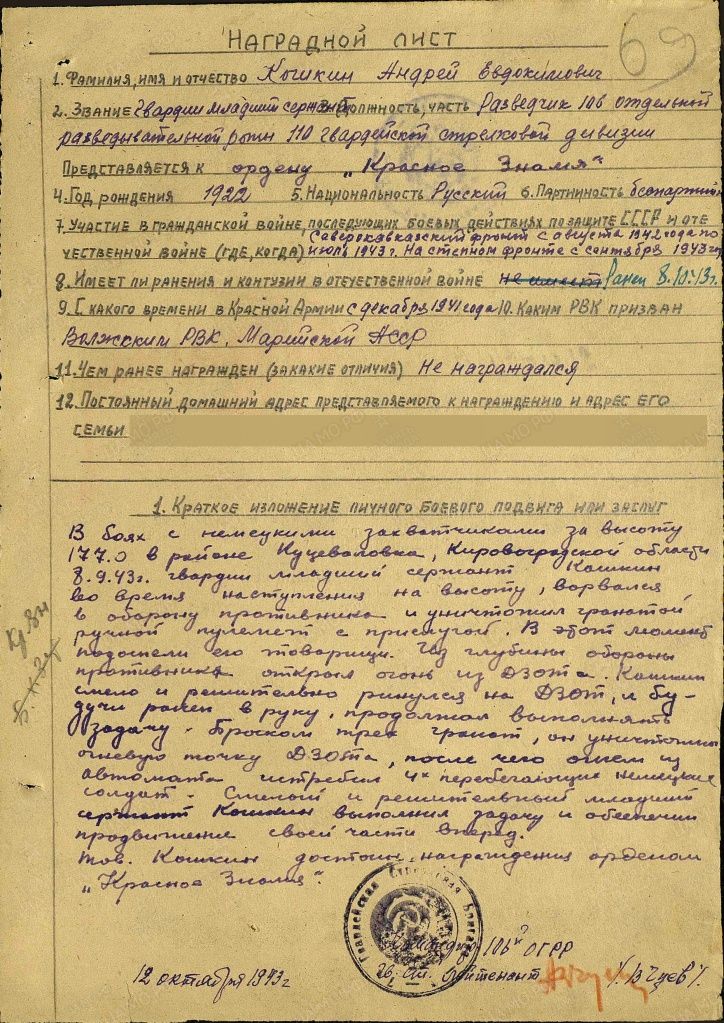 69
НАГРАДНОЙ ЛИСТ
1. Фамилия, имя и отчество Кошкин Андрей Евдокимович
2. Звание Гвардии младший сержант Должность, часть Разведчик 106 отдельной
разведывательной роты 110 гвардейской стрелковой дивизии
Представляется к ордену „Красное Знамя“
4. Год рождения 1922 5. Национальность Русский 6. Партийность беспартийн
7. Участие в гражданской войне, последующих боевых действиях по защите СССР и оте
чественной войне (где, когда) Северокавказский фронт с августа 1942 года по
июль 1943 г. На степном фронте с сентября 1943 г.
8. Имеет ли ранения и контузии в отечественной войне не имеет Ранен 8.10.43 г.
9. С какого времени в Красной Армии с декабря 1941 года 10. Каким РВК призван
Волжским РВК, Марийской АССР
11. Чем ранее награжден (за какие отличия) Не награждался
12. Постоянный домашний адрес представляемого к награждению и адрес его
семьи
1. Краткое изложение личного боевого подвига или заслуг
В боях с немецкими захватчиками за высоту
177.0 в районе Куцеваловка, Кировоградской области
8.9.43г. гвардии младший сержант Кошкин
во время наступления на высоту, ворвался
в оборону противника и уничтожил гранатой
ручной пулемет с прислугой. В этот момент
подоспели его товарищи. Из глубины обороны
противника открыл огонь из ДЗОТа. Кошкин
смело и решительно ринулся на ДЗОТ, и бу-
дучи ранен в руку, продолжал выполнять
задачу. Броском трех гранат, он уничтожил
огневую точку ДЗОТа, после чего огнем из
автомата истребил 4х перебегающих немецких
солдат. Смелый и решительный младший
сержант Кошкин выполнил задачу и обеспечил
продвижение своей части вперед.
Тов. Кошкин достоин награждения орденом
„Красное Знамя“.
Командир 106й ОГРР
Гв. ст. лейтенант
12 октября 1943г